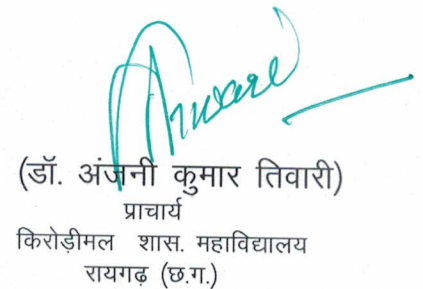 (डॉ. अंजनी कुमार तिवारी)
प्राचार्य
किरोड़ीमल शास. महाविद्यालय
रायगढ़ (छ.ग.)